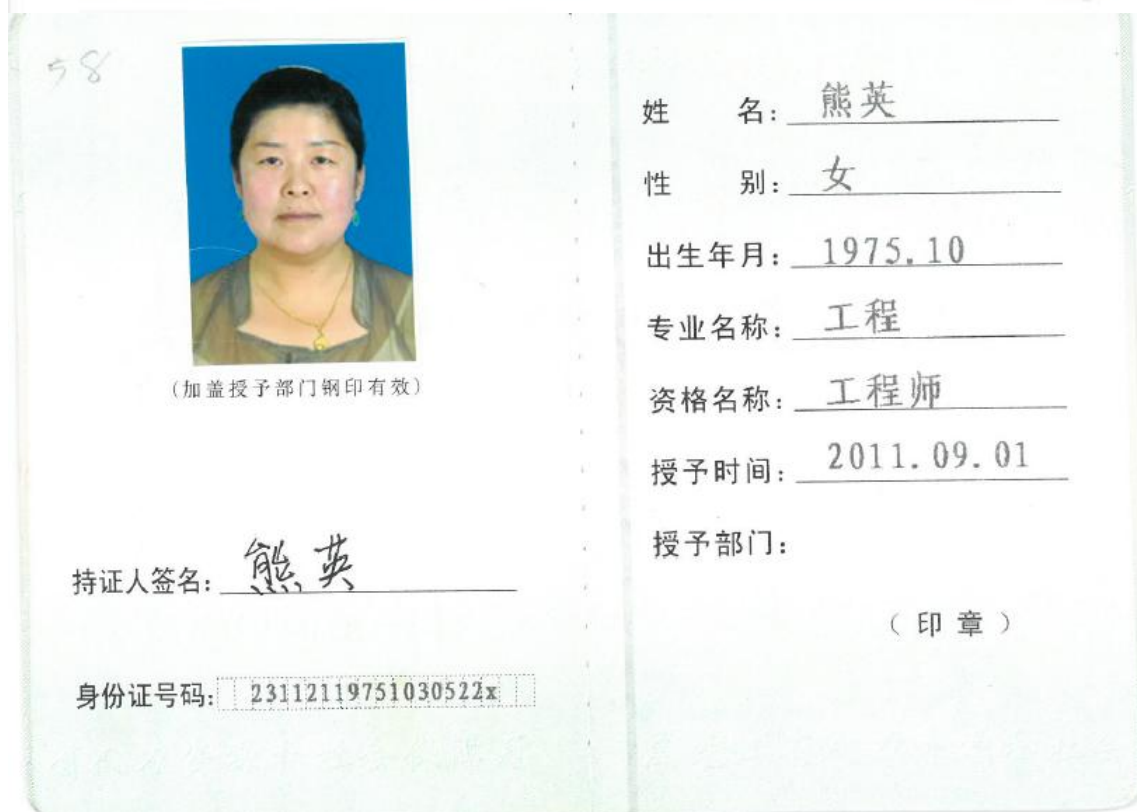 58
(加盖授予部门钢印有效)
持证人签名: 熊英
身份证号码: 23112119751030522x
姓 名: 熊英
性 别: 女
出生年月: 1975.10
专业名称: 工程
资格名称: 工程师
授予时间: 2011.09.01
授予部门:
(印章)